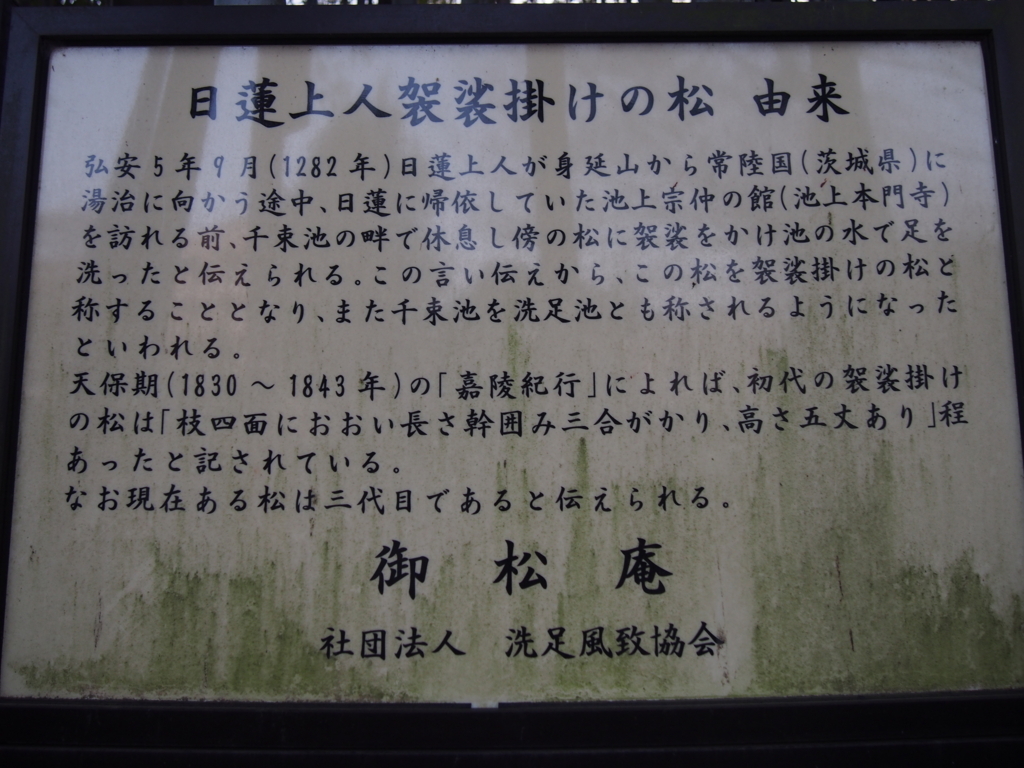 日蓮上人袈裟掛けの松 由来
弘安5年9月(1282年)日蓮上人が身延山から常陸国(茨城県)に
湯治に向かう途中、日蓮に帰依していた池上宗仲の館(池上本門寺)
を訪れる前、千束池の畔で休息し傍の松に袈裟をかけ池の水で足を
洗ったと伝えられる。この言い伝えから、この松を袈裟掛けの松と
称することとなり、また千束池を洗足池とも称されるようになった
といわれる。
天保期(1830〜1843年)の「嘉陵紀行」によれば、初代の袈裟掛け
の松は「枝四面におおい長さ幹囲み三合がかり、高さ五丈あり」程
あったと記されている。
なお現在ある松は三代目であると伝えられる。
御松庵
社団法人 洗足風致協会